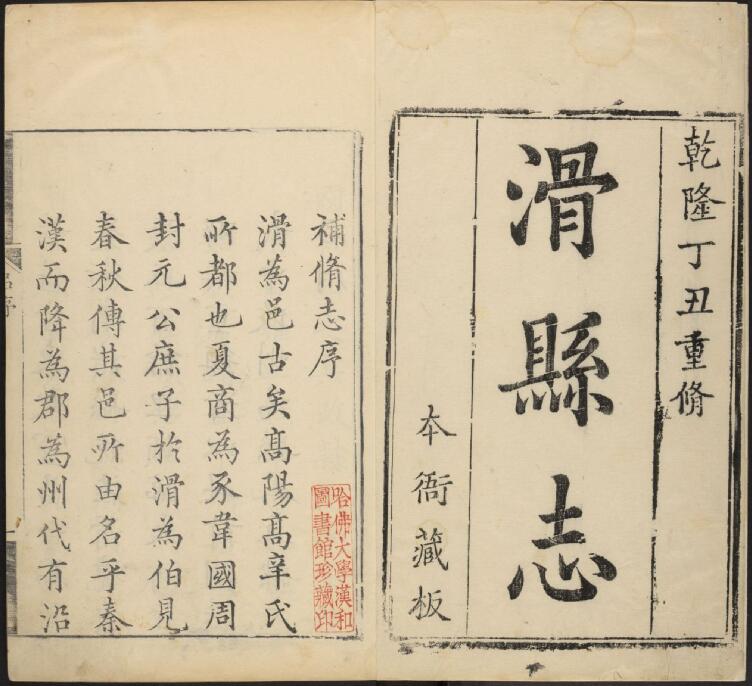 乾隆丁丑重脩
滑縣志
本衙藏板
補脩志序
滑為邑古矣髙陽髙辛氏
所都也夏商為豕韋國周
封元公庶子於滑為伯見
春秋傳其邑所由名乎秦
漢而降為郡為州代有沿
哈佛大學漢和
圖書館珍藏印